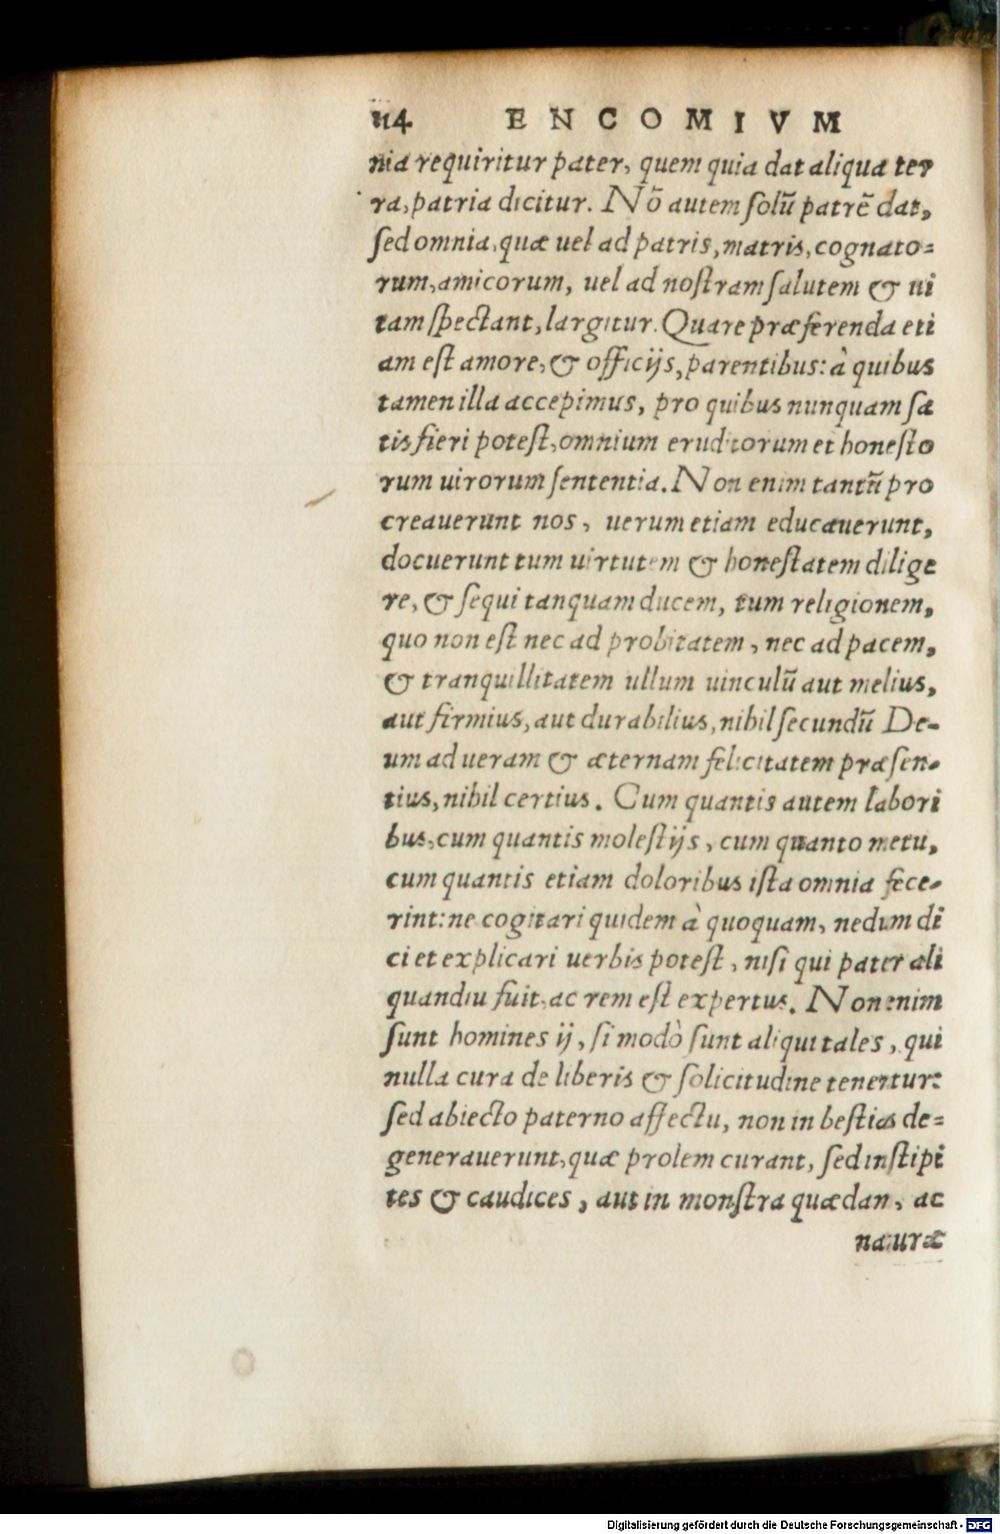 114 ENCOMIVM
nia requiritur pater, quem quia dat aliqua ter
ra, patria dicitur. Nõ autem ſolũ patrẽ dat,
ſed omnia, quæ uel ad patris, matris, cognato=
rum, amicorum, uel ad noſtram ſalutem & ui
tam ſpectant, largitur. Quare præferenda eti
am eſt amore, & officijs, parentibus: à quibus
tamen illa accepimus, pro quibus nunquam ſa
tis fieri poteſt, omnium eruditorum et honeſto
rum uirorum ſententia. Non enim tantũ pro
creauerunt nos, uerum etiam educauerunt,
docuerunt tum uirtutem & honeſtatem dilige
re, & ſequi tanquam ducem, tum religionem,
quo non eſt nec ad probitatem, nec ad pacem,
& tranquillitatem ullum uinculũ aut melius,
aut firmius, aut durabilius, nihil ſecundũ De-
um ad ueram & æternam felicitatem præſen-
tius, nihil certius. Cum quantis autem labori
bus, cum quantis moleſtijs, cum quanto metu,
cum quantis etiam doloribus iſta omnia fece-
rint: ne cogitari quidem à quoquam, nedum di
ci et explicari uerbis poteſt, niſi qui pater ali
quandiu fuit, ac rem eſt expertus. Non enim
ſunt homines ij, ſi modò ſunt aliqui tales, qui
nulla cura de liberis & ſolicitudine tenentur:
ſed abiecto paterno affectu, non in beſtias de=
generauerunt, quæ prolem curant, ſed in ſtipi
tes & caudices, aut in monſtra quædan, ac
naturæ
Digitalisierung gefördert durch die Deutsche Forschungsgemeinschaft - DFG